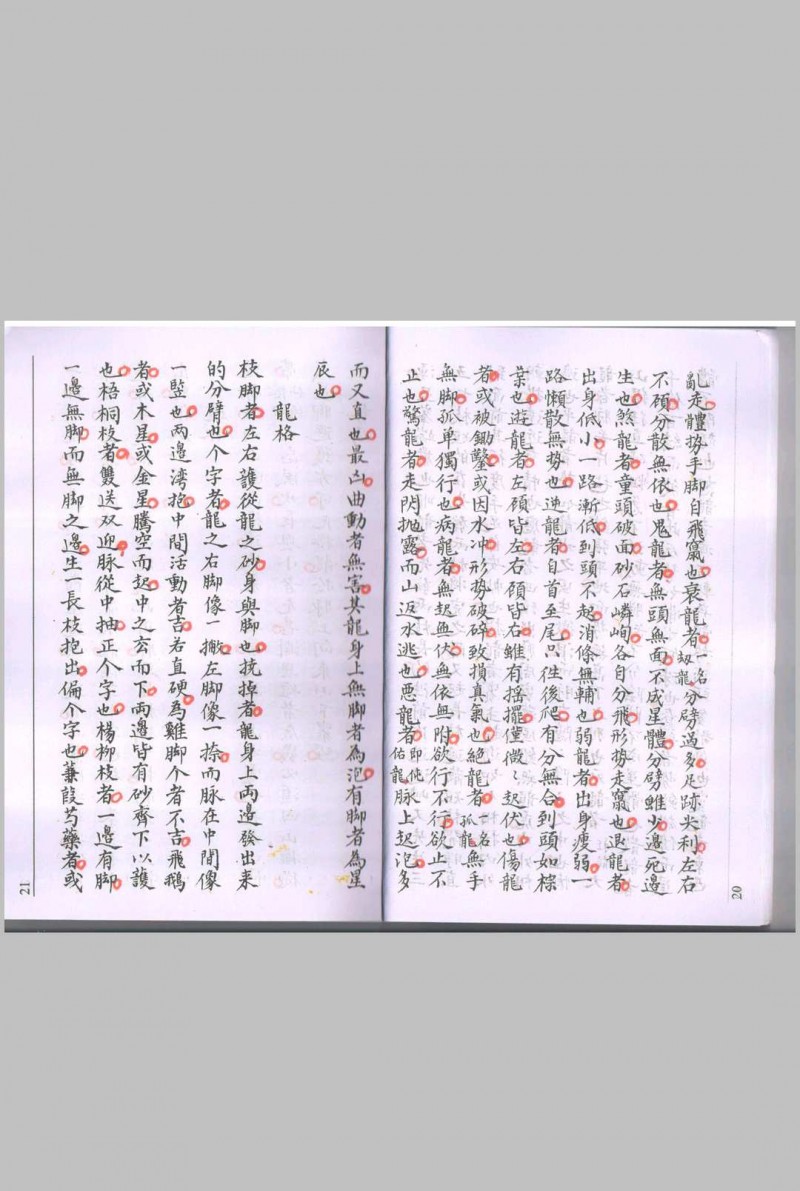 亂走體势手脚自飛竄也衰龍者一名刼龍分劈過多足跡尖利左右
不顧分散無依也鬼龍者無頭無面不成星體分劈雖少邊死邊
生也煞龍者童頭破面砂石嶙峋各自分飛形势走竄也退龍者
出身低小一路漸低到頭不起消條無輔也弱龍者出身瘦弱一
路懶散無势也逆龍者自首至尾只往後爬有分無合到頭如棕
葉也遊龍者左顧皆左右顧皆右雖有搖擺僅微微起伏也傷龍
者或被鋤鑿或因水冲形势破碎致損真氣也絕龍者一名孤龍無手
無脚孤单獨行也病龍者無起無伏無依無附欲行不行欲止不
止也驚龍者走閃抛露而山返水逃也悪龍者即佗佑龍脉上起泡多
20
而又直也最凶曲動者無害其龍身上無脚者為泡有脚者為星
辰也
龍格
枝脚者左右護從龍之砂身與脚也撓掉者龍身上兩邊發出来
的分臂也个字者龍之右脚像一撇左脚像一捺而脉在中間像
一竪也兩邊湾抱中間活動者吉若直硬為雞脚个者不吉飛鵝
者或木星或金星騰空而起中之玄而下兩邊皆有砂齊下以護
也梧桐枝者雙送双迎脉從中抽正个字也楊柳枝者一邊有脚
一邊無脚而無脚之邊生一長枝抱出偏个字也蒹葭芍藥者或
21